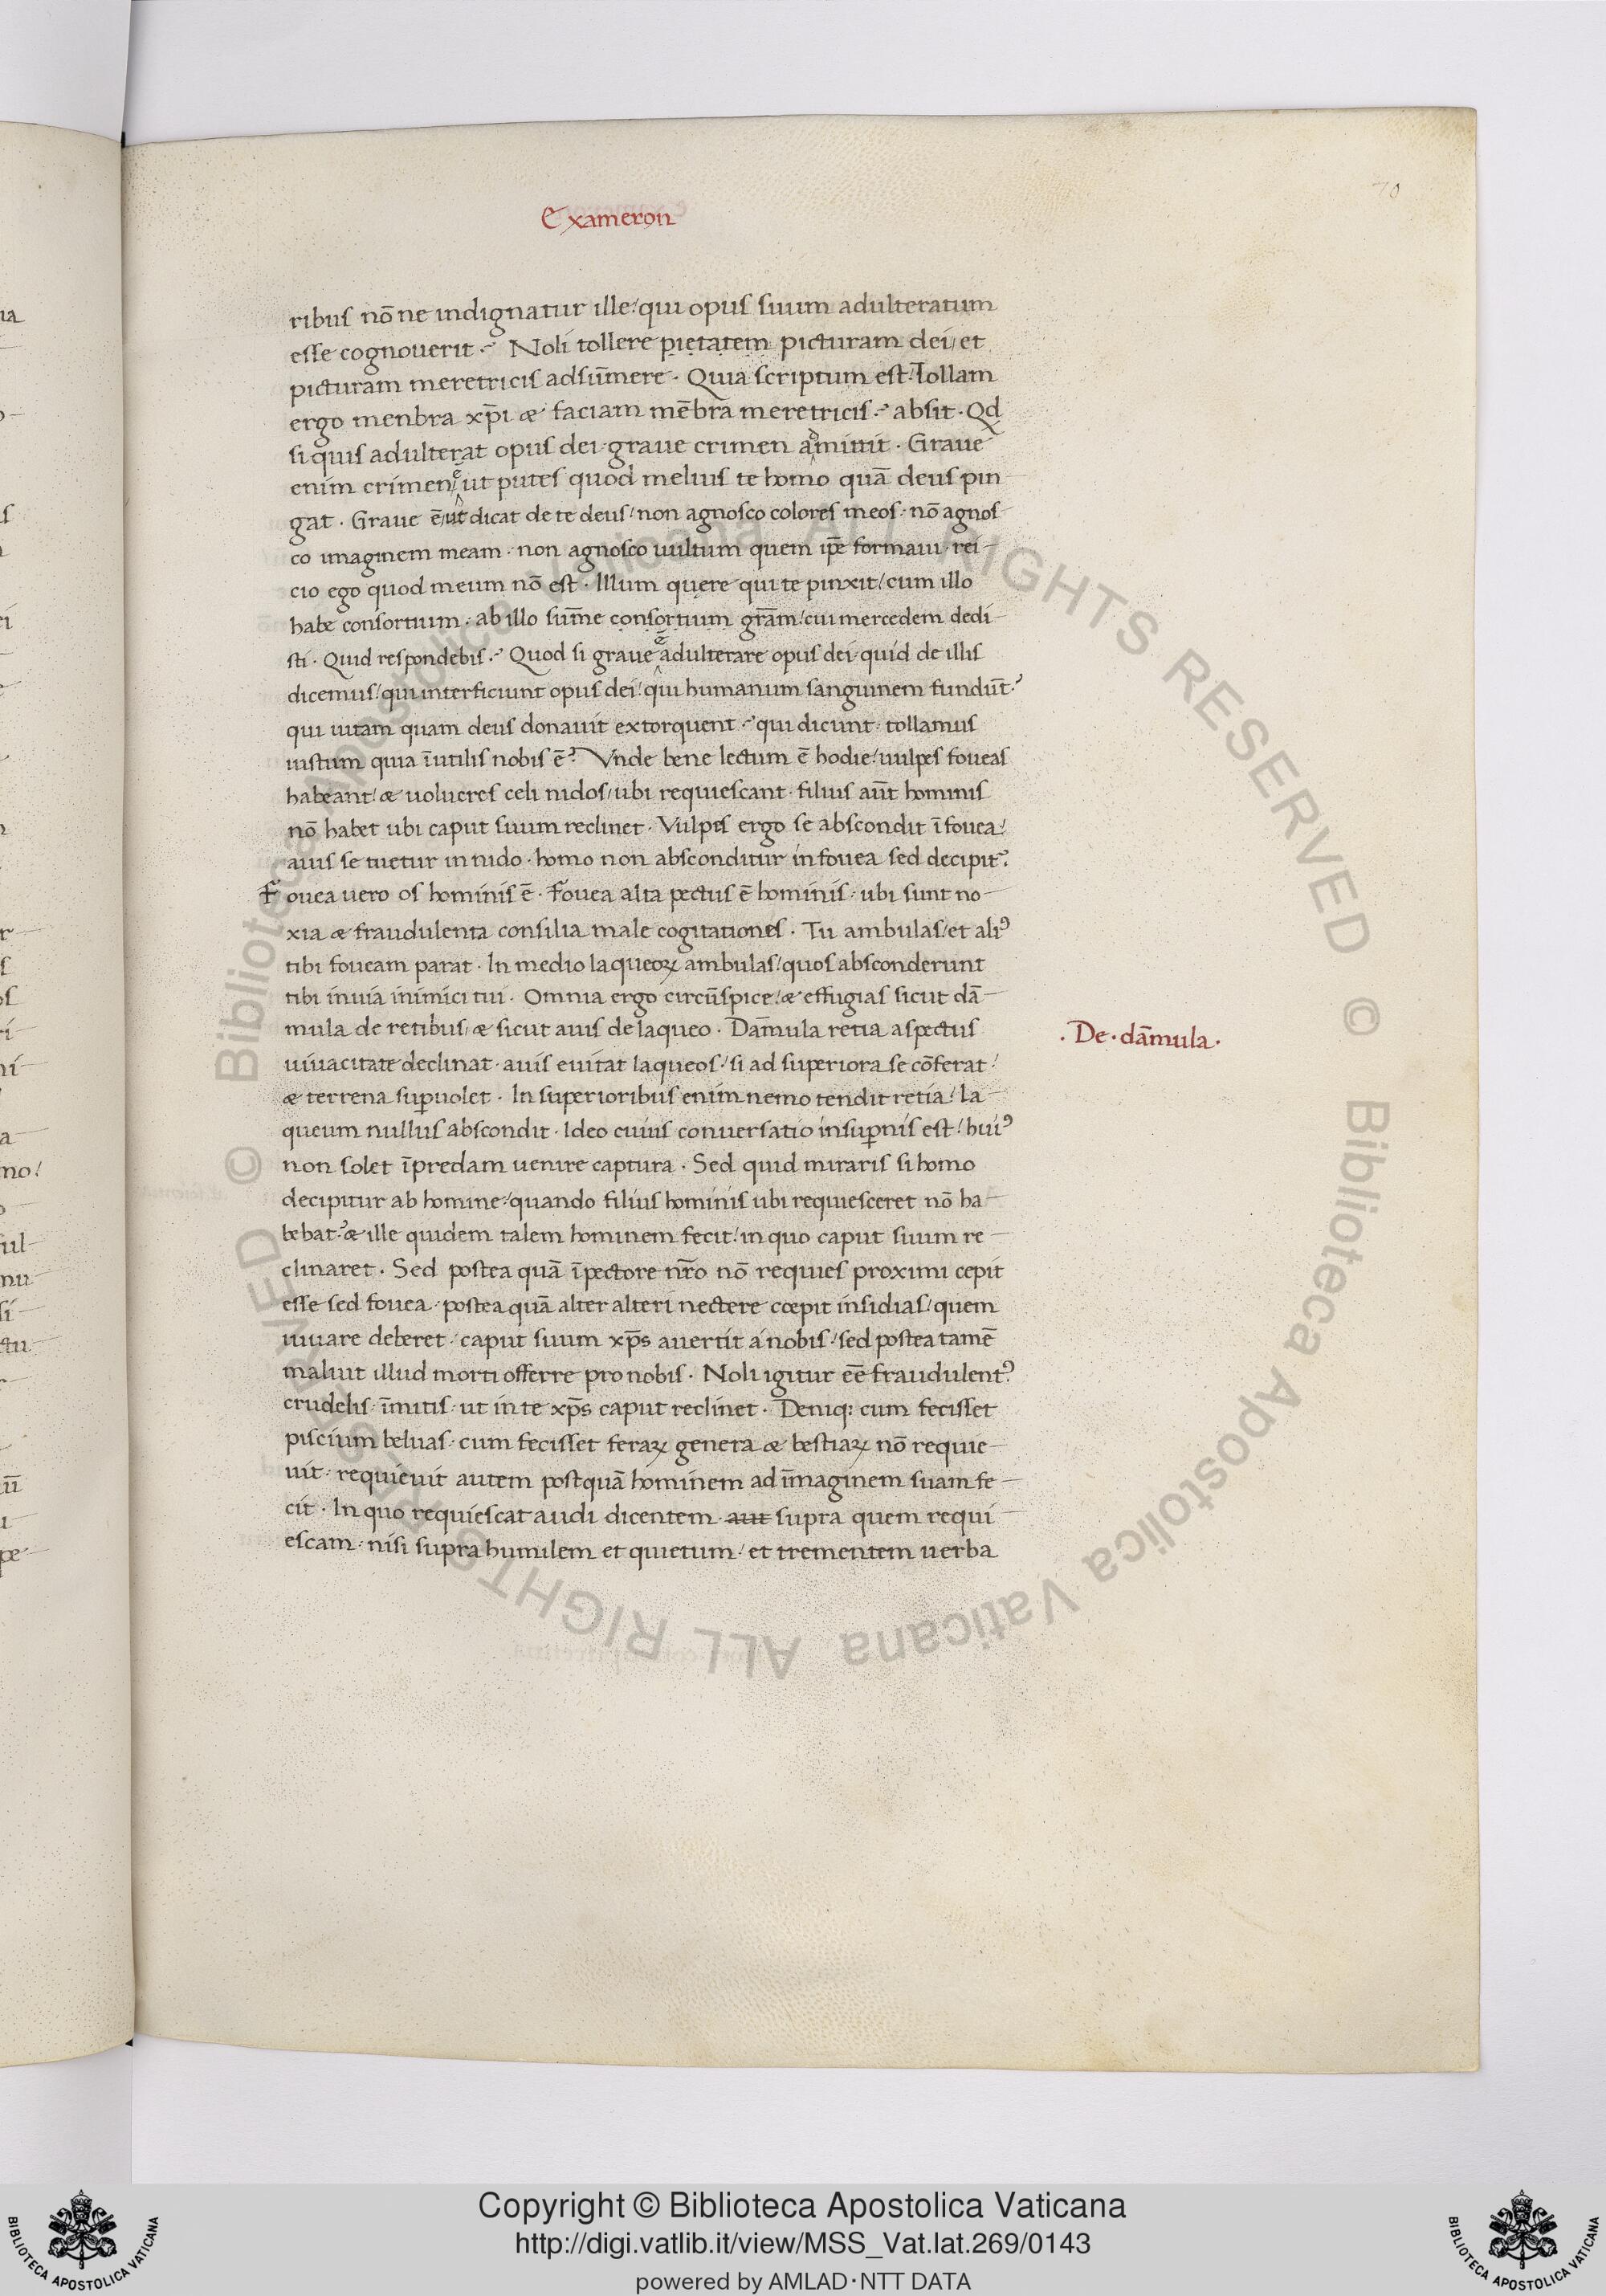 70
Exameron
ribus nōne indignatur ille/ qui opus suum adulteratum
esse cognouerit? Noli tollere pietatem picturam dei/ et
picturam meretricis adsūmere · Quia scriptum est/ Tollam
ergo menbra xp̄i æ faciam mēbra meretricis? absit · Qd
si quis adulterat opus dei · graue crimen admittit · Graue
enim crimen ē/ ut putes quod melius te homo quā deus pin
gat · Graue ē/ ut dicat de te deus/ non agnosco colores meos · nō agnos
co imaginem meam · non agnosco uultum quem ip̄e formaui · rei
cio ego quod meum nō est · Illum quęre qui te pinxit/ cum illo
habe consortium · ab illo sum̄e consortium grām/ cui mercedem dedi
sti · Quid respondebis? Quod si graue ē adulterare opus dei · quid de illis
dicemus/ qui interficiunt opus dei/ qui humanum sanguinem fundūt?
qui uitam quam deus donauit extorquent? qui dicunt · tollamus
iustum quia īutilis nobis ē? Vnde bene lectum ē hodie/ uulpes foueas
habeant/ æ uolucres celi nidos/ ubi requiescant · filius aūt hominis
nō habet ubi caput suum reclinet · Vulpes ergo se abscondit ī fouea/
auis se tuetur in nido · homo non absconditur in fouea sed decipitꝰ
Fouea uero os hominis ē · Fouea alta pectus ē hominis · ubi sunt no
xia æ fraudulenta consilia male cogitationes · Tu ambulas/ et aliꝰ
tibi foueam parat · In medio laqueoꝝ ambulas/ quos absconderunt
tibi in uia inimici tui · Omnia ergo circūspice/ æ effugias sicut dā
mula de retibus/ æ sicut auis de laqueo · Dam̄ula retia aspectus
· De · dām̄ula ·
uiuacitate declinat · auis euitat laqueos/ si ad superiora se cōferat/
æ terrena suꝑuolet · In superioribus enim nemo tendit retia/ la
queum nullus abscondit · Ideo cuius conuersatio in suꝑnis est/ huiꝰ
non solet ī predam uenire captura · Sed quid miraris si homo
decipitur ab homine/ quando filius hominis ubi requiesceret nō ha
bebat? æ ille quidem talem hominem fecit/ in quo caput suum re
clinaret · Sed postea quā ī pectore nr̄o nō requies proximi cepit
esse sed fouea · postea quā alter alteri nectere cœpit insidias/ quem
iuuare deberet · caput suum xp̄s auertit a nobis/ sed postea tamē
maluit illud morti offerre pro nobis · Noli igitur eē fraudulentꝰ
crudelis · īmitis · ut in te xp̄s caput reclinet · Deniq; cum fecisset
piscium beluas · cum fecisset feraꝝ genera æ bestiaꝝ nō requie
uit · requieuit autem postquā hominem ad īmaginem suam fe
cit · In quo requiescat audi dicentem · aut supra quem requi
escam · nisi supra humilem et quietum/ et trementem uerba
© Biblioteca Apostolica Vaticana ALL RIGHTS RESERVED © Biblioteca Apostolica Vaticana ALL RIGHTS RESERVED
Copyright © Biblioteca Apostolica Vaticana
http://digi.vatlib.it/view/MSS_Vat.lat.269/0143
powered by AMLAD·NTT DATA
BIBLIOTECA APOSTOLICA VATICANA
BIBLIOTECA APOSTOLICA VATICANA